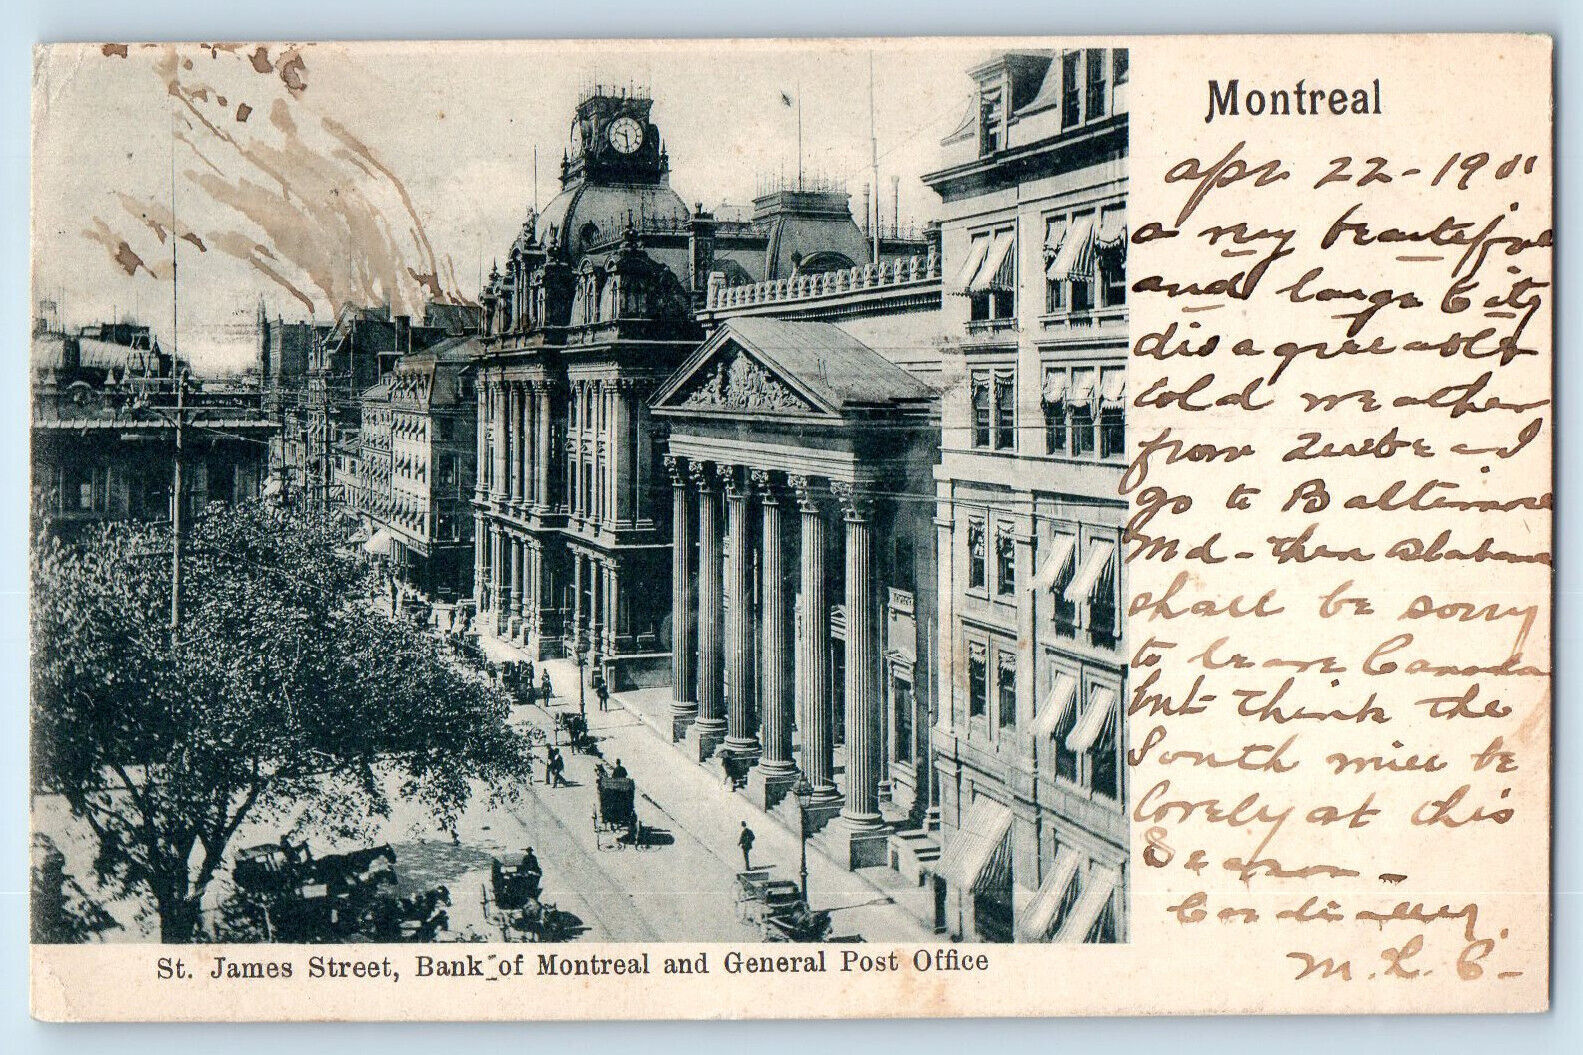 Montreal
Apr 22-1901
a very beautiful
and large City
disagreeable
cold weather
from here I
go to Baltimore
Md - then Alabama
shall be sorry
to leave Canada
but think the
South will be
lovely at this
Season -
Cordially,
M. L. C-
St. James Street, Bank of Montreal and General Post Office